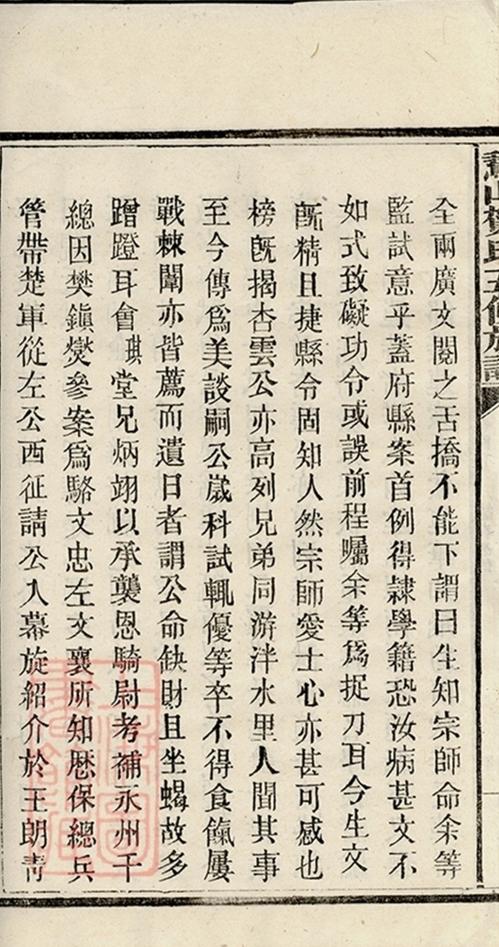 全兩廣文閱之舌撟不能下謂曰生知宗師命余等
監試意乎蓋府縣案首例得隸學籍恐汝病甚文不
如式致礙功令或誤前程囑余等爲捉刀耳今生文
旣精且捷縣令固知人然宗師愛士心亦甚可感也
榜旣揭杏雲公亦高列兄弟同游泮水里人聞其事
至今傳爲美談嗣公歲科試輒優等卒不得食餼屢
戰棘闈亦皆薦而遺日者謂公命缺財且坐蝎故多
蹭蹬耳會琪堂兄炳翊以承襲恩騎尉考補永州千
總因樊鎭燮參案爲駱文忠左文襄所知歷保總兵
管帶楚軍從左公西征請公入幕旋紹介於王朗靑